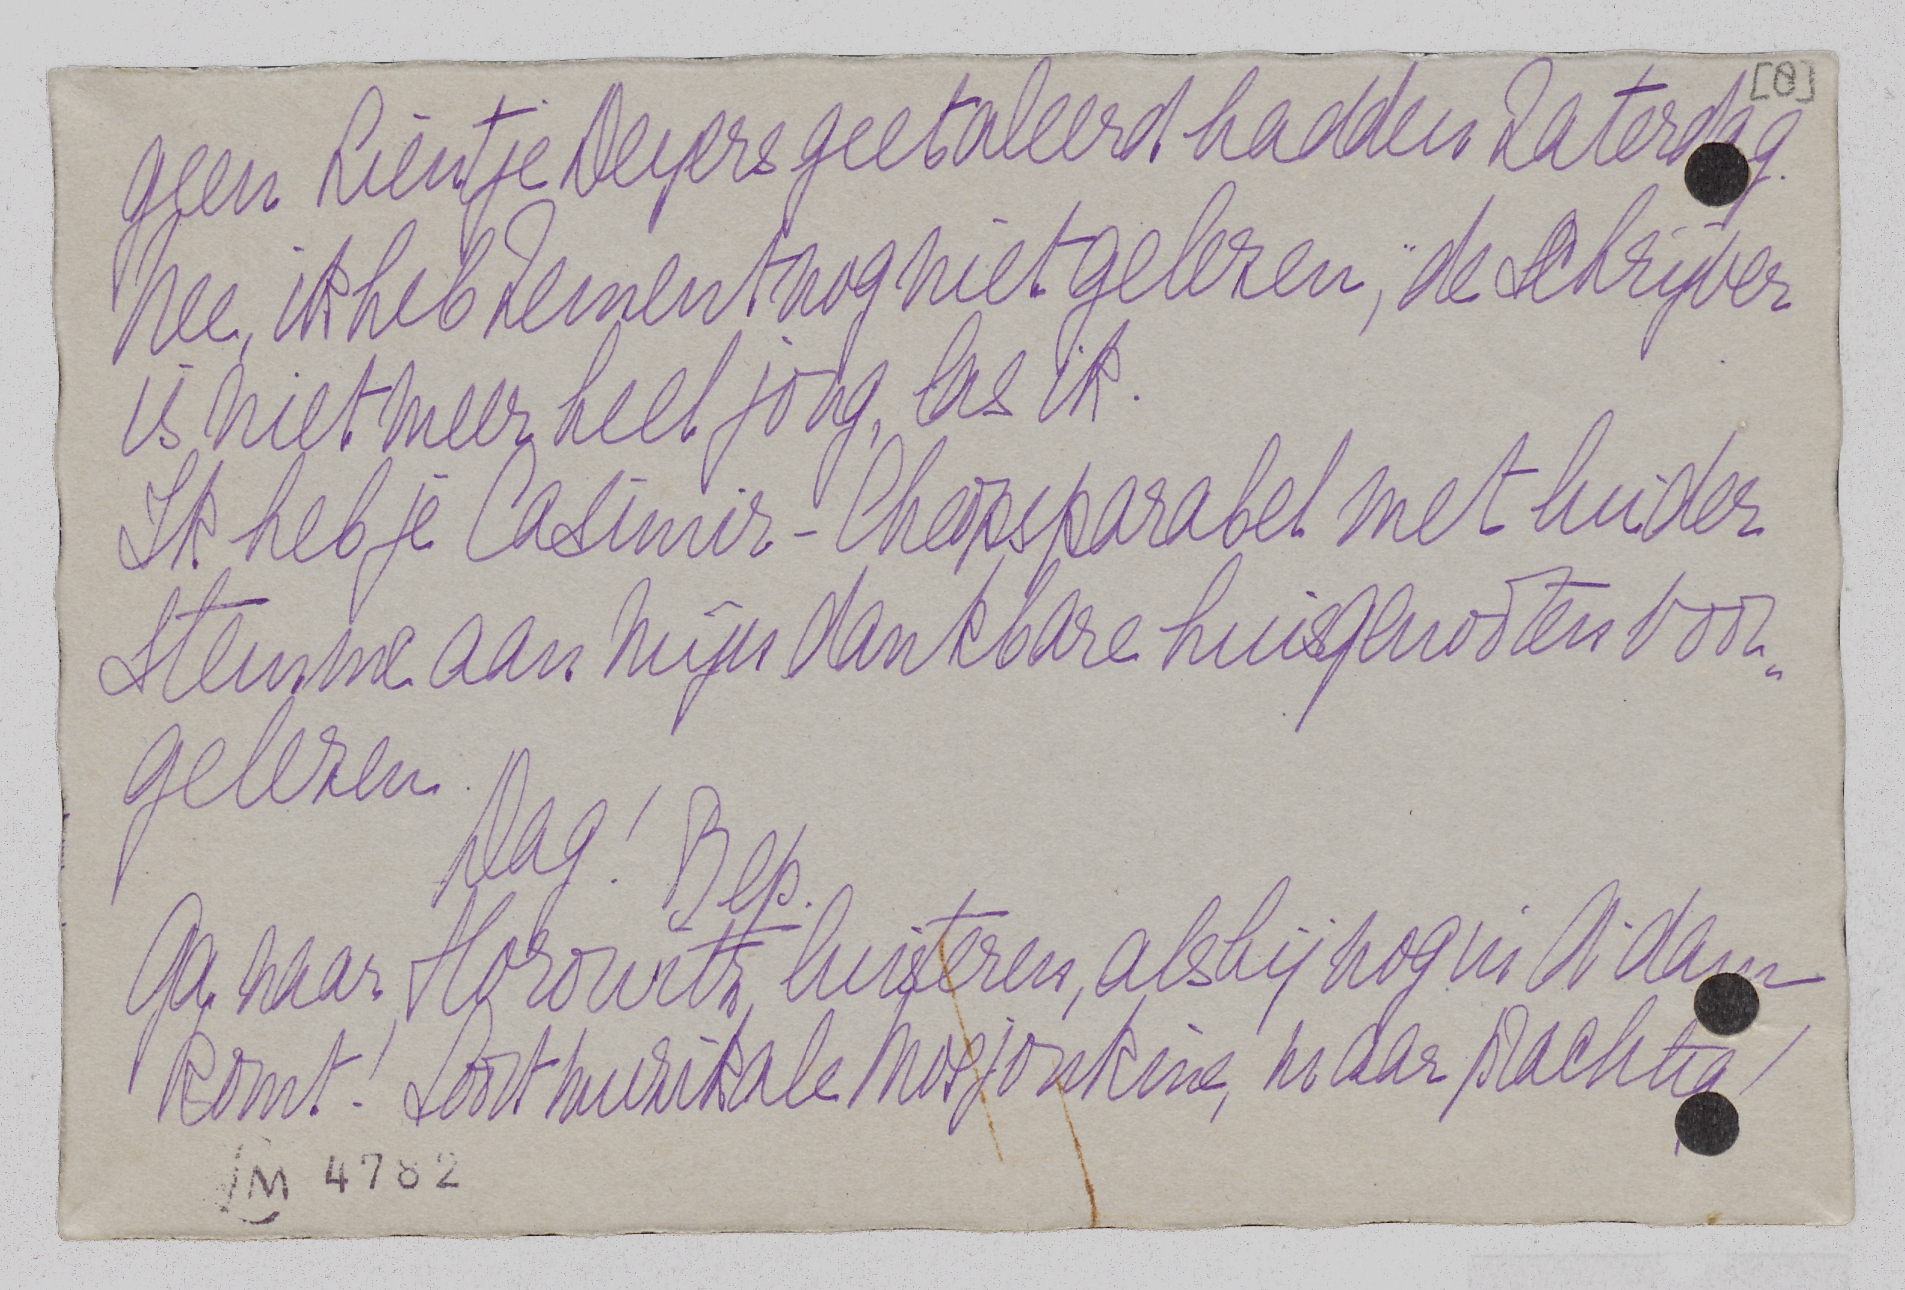 [8]
geen Lientje Deyers geetaleerd hadden Zaterdag.
Nee, ik heb Zement nog niet gelezen, de schrijver
is niet meer heel jong, las ik.
Ik heb je Casimir-Cheopsparabel met luider
stemme aan mijn dankbare huisgenooten voor„
gelezen.
Dag! Bep.
Ga naar Horowitz luisteren, als hij nog in A'dam
komt! Soort muzikale Mosjoukine, maar prachtig!
M 4782